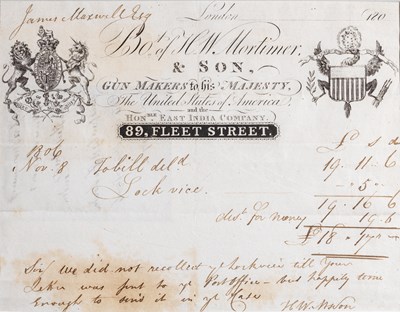 James Maxwell Esq
London 180
Bot. of H.W. Mortimer,
& SON,
GUN MAKERS to his MAJESTY,
The United States of America,
and the
HONble EAST INDIA COMPANY.
89, FLEET STREET.
£ s d
1806
Nov. 8 To bill deld. 19 . 11 - 6
Lock vice. - 5 -
19 . 16 - 6
dist. for money 19 . 6
£18
Sir we did not recollect ye lockvice till your
Letter was put to ye Post Office - but happily
Enough to send it in ye Case